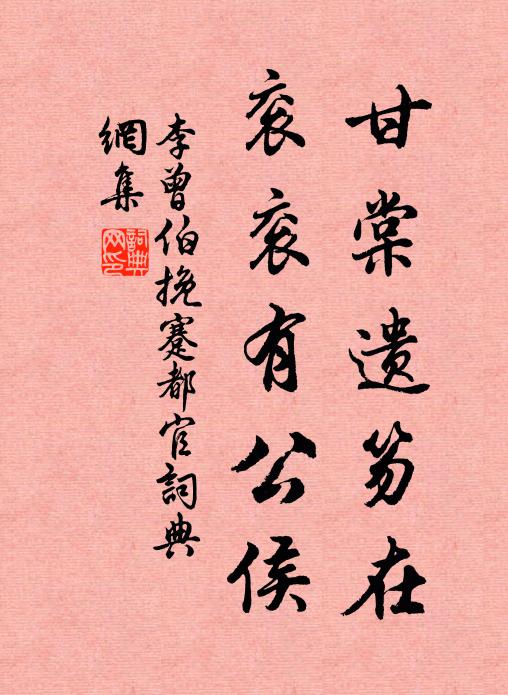 甘棠遗笏在
衮衮有公侯
李曾伯挽蹇都官詞典
網集
詞典網印